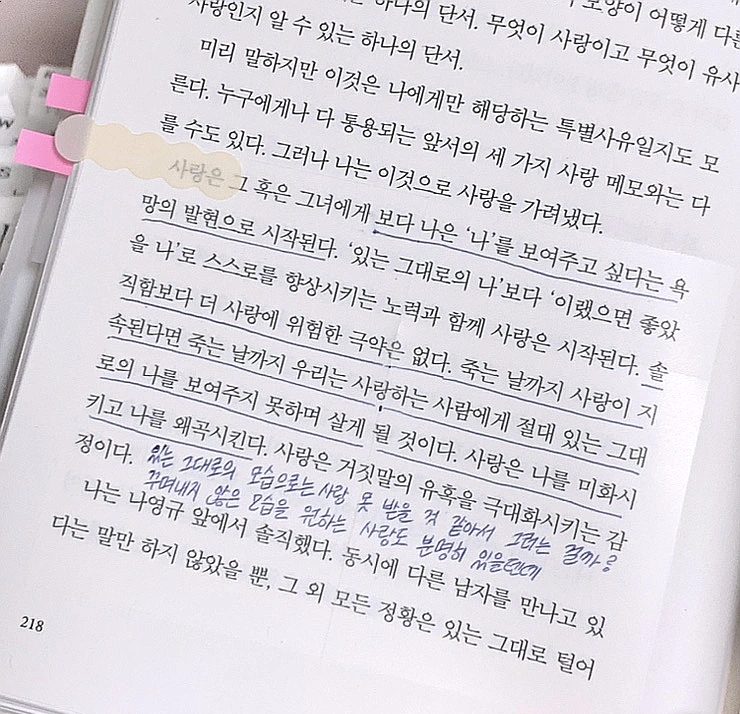 하나의 단서. 무엇이 사랑이고 무엇이 유사
모양이 어떻게 다른
사랑인지 알 수 있는 하나의 단서.
미리 말하지만 이것은 나에게만 해당하는 특별사유일지도 모
른다. 누구에게나 다 통용되는 앞서의 세 가지 사랑 메모와는 다
를 수도 있다. 그러나 나는 이것으로 사랑을 가려냈다.
사랑은 그 혹은 그녀에게 보다 나은 '나'를 보여주고 싶다는 욕
망의 발현으로 시작된다. '있는 그대로의 나'보다 '이랬으면 좋았
을 나'로 스스로를 향상시키는 노력과 함께 사랑은 시작된다. 솔
직함보다 더 사랑에 위험한 극약은 없다. 죽는 날까지 사랑이 지
속된다면 죽는 날까지 우리는 사랑하는 사람에게 절대 있는 그대
로의 나를 보여주지 못하며 살게 될 것이다. 사랑은 나를 미화시
키고 나를 왜곡시킨다. 사랑은 거짓말의 유혹을 극대화시키는 감
정이다.
있는 그대로의 모습으로는 사랑 못 받을 것 같아서 그러는 걸까?
꾸며내지 않은 모습을 원하는 사랑도 분명히 있을텐데
나는 나영규 앞에서 솔직했다. 동시에 다른 남자를 만나고 있
다는 말만 하지 않았을 뿐, 그 외 모든 정황은 있는 그대로 털어
218